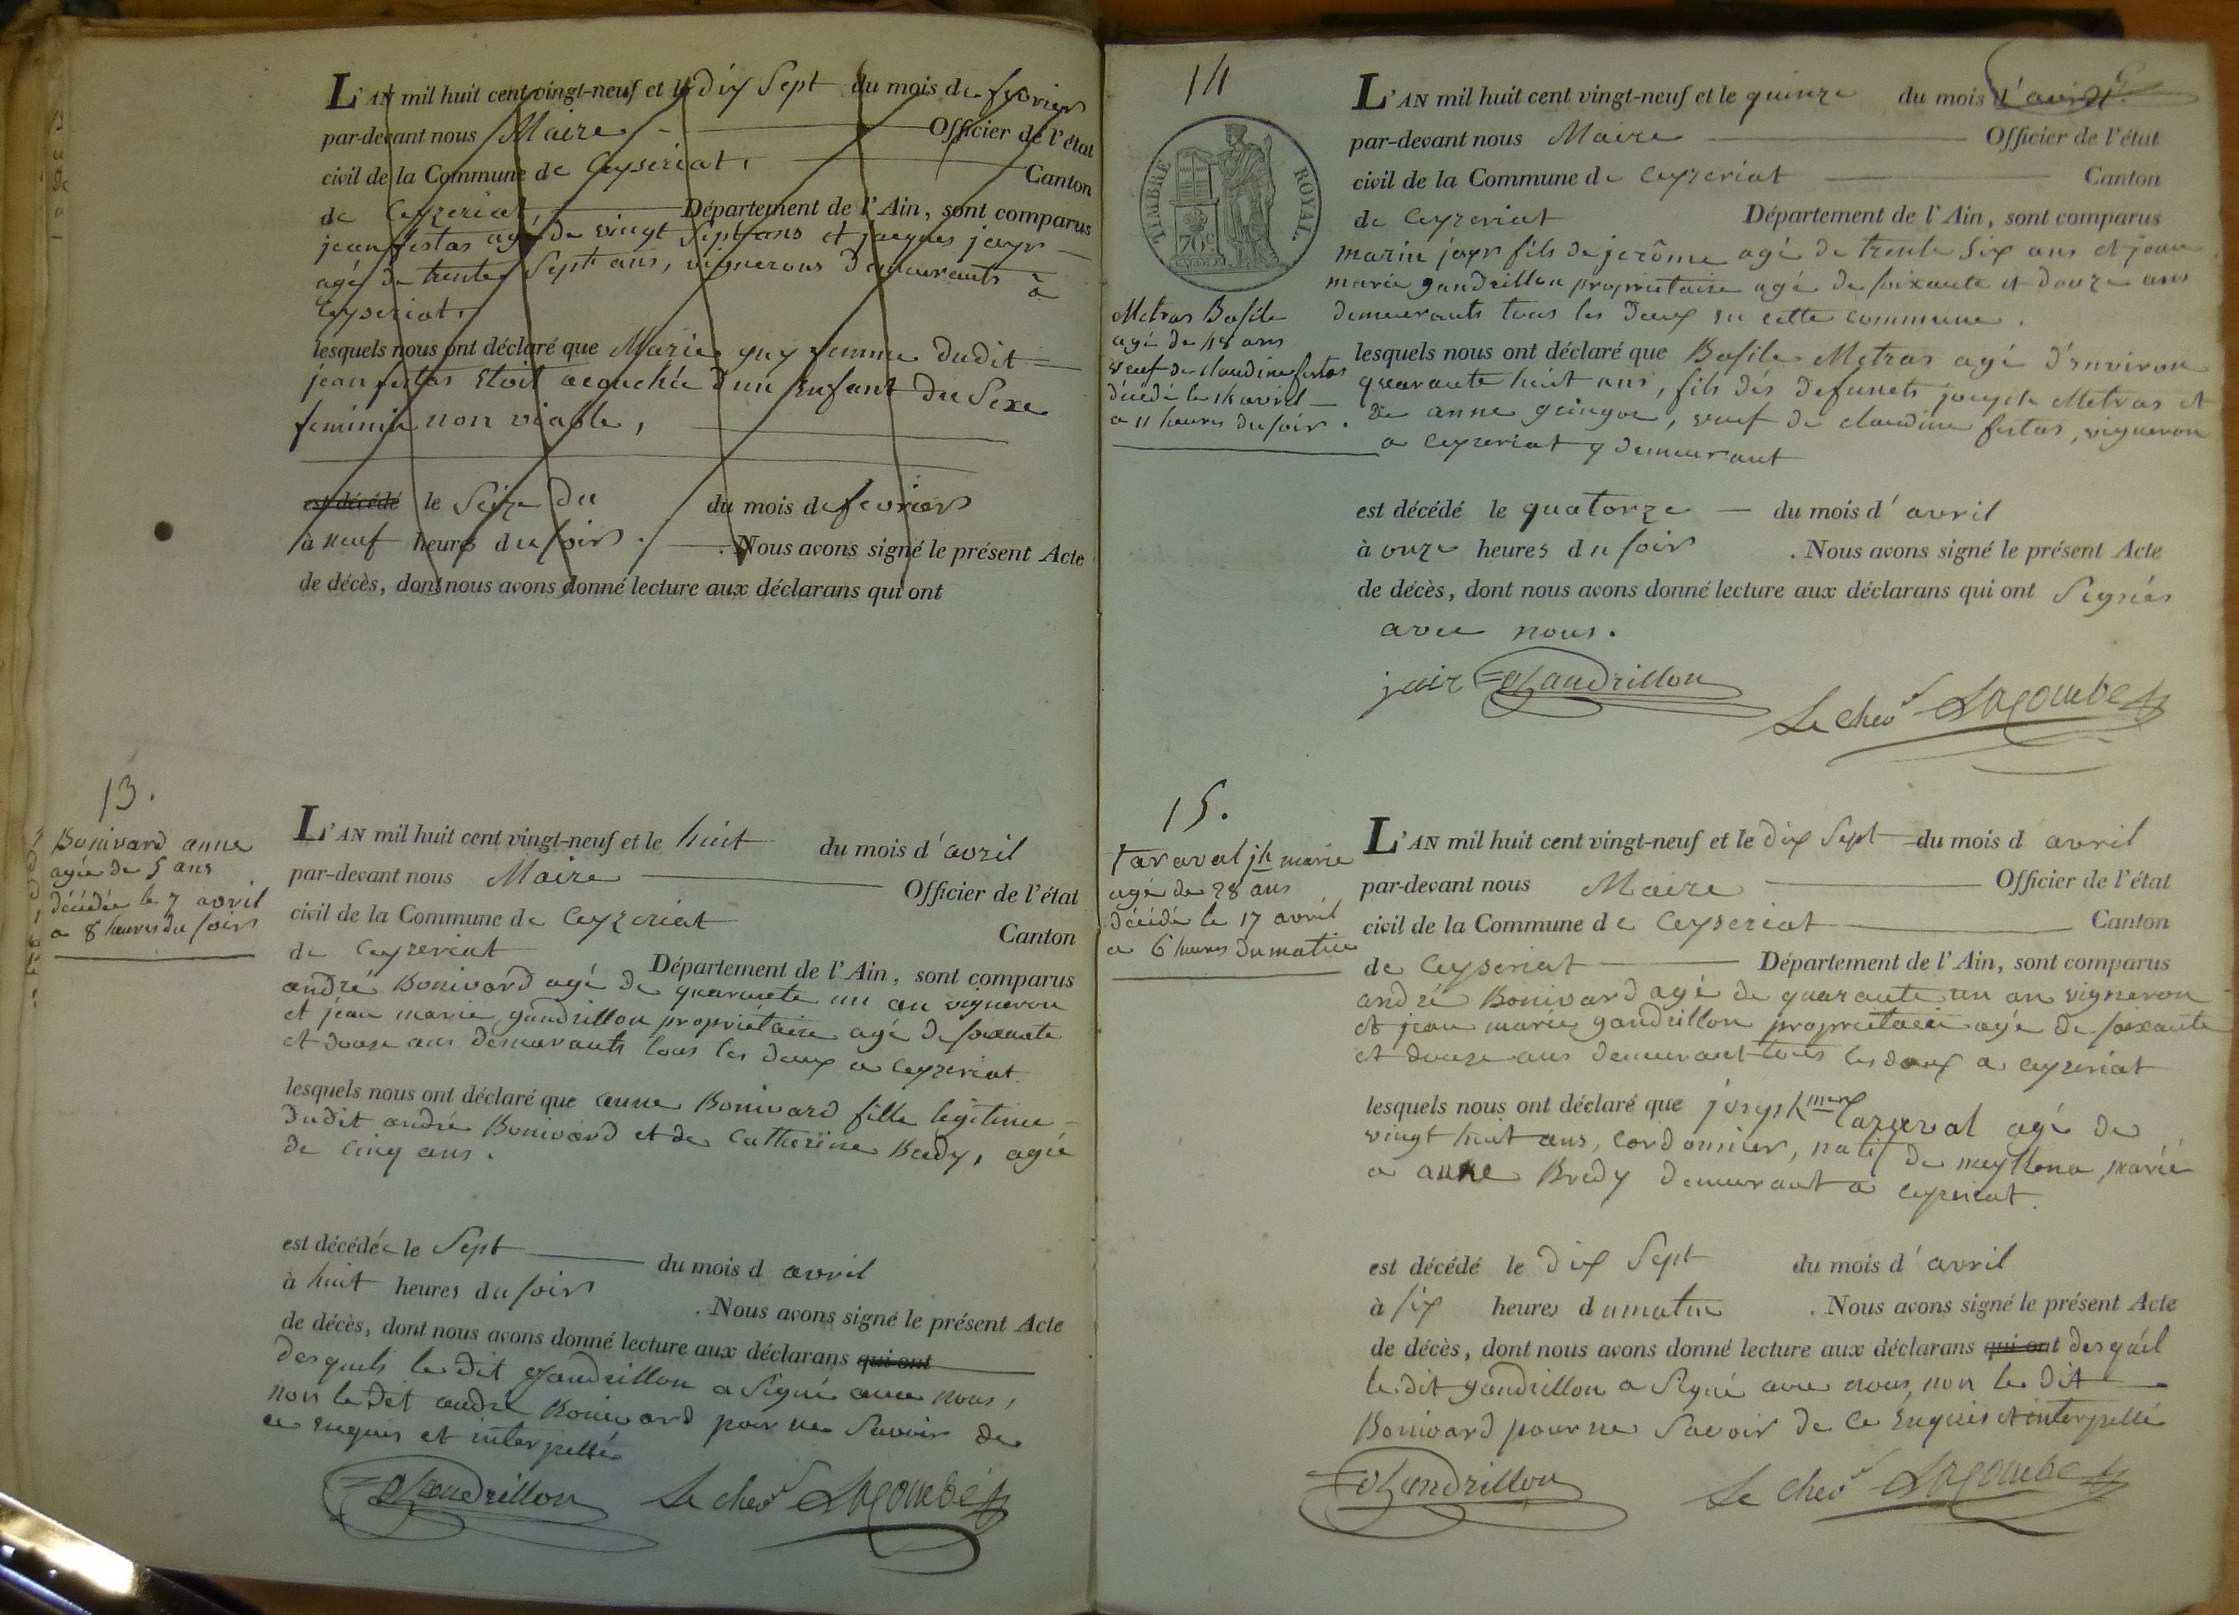 L'AN mil huit cent vingt-neuf et le dix Sept du mois de fevrier
par-devant nous Maire Officier de l'état
civil de la Commune de Ceyseriat, Canton
de Ceyzeriat, Département de l'Ain, sont comparus
jean festas agé de vingt Sept ans et jacques jayr
agé de trente Sept ans, vignerons demeurants à
Ceyseriat,
lesquels nous ont déclaré que Marie guy femme dudit
jean festas etoit accouchée d'un Enfant du Sexe
feminin non viable,
est décédé le Seize du du mois de fevrier
à neuf heures du soir. Nous avons signé le présent Acte
de décès, dont nous avons donné lecture aux déclarans qui ont
13.
Bonivard anne
agée de 5 ans
décédée le 7 avril
a 8 heures du soir
L'AN mil huit cent vingt-neuf et le huit du mois d'avril
par-devant nous Maire Officier de l'état
civil de la Commune de Ceyzeriat Canton
de Ceyzeriat Département de l'Ain, sont comparus
andré Bonivard agé de quarante un an vigneron
et jean marie gandrillon propriétaire agé de soixante
et douze ans demeurants tous les deux a Ceyzeriat
lesquels nous ont déclaré que anne Bonivard fille legitime
dudit andré Bonivard et de Catherine agée
de cinq ans.
est décédée le Sept du mois d avril
à huit heures du soir. Nous avons signé le présent Acte
de décès, dont nous avons donné lecture aux déclarans qui ont
desquels le dit gandrillon a Signé avec nous,
non le dit andré Bonivard pour ne Savoir de
ce enquis et interpellé
Gandrillon Le chev Lacombe
14
TIMBRE ROYAL
70 c
Metras Basile
agé de 48 ans
veuf de claudine festas
décédé le 14 avril
a 11 heures du soir.
L'AN mil huit cent vingt-neuf et le quinze du mois d'avril
par-devant nous Maire Officier de l'état
civil de la Commune de Ceyzeriat Canton
de Ceyzeriat Département de l'Ain, sont comparus
marin jayr fils de jerôme agé de trente Six ans et jean
marie gandrillon propriétaire agé de soixante et douze ans
demeurants tous les deux en cette commune.
lesquels nous ont déclaré que Basile Metras agé d'environ
quarante huit ans, fils des defunets joseph Metras et
de anne guingoe, veuf de claudine festas, vigneron
a Ceyzeriat y demeurant
est décédé le quatorze du mois d'avril
à onze heures du soir. Nous avons signé le présent Acte
de décès, dont nous avons donné lecture aux déclarans qui ont Signés
avec nous.
jair Gandrillon
Le chev Lacombe
15.
Taraval jh marie
agé de 28 ans
décédé le 17 avril
a 6 heures du matin
L'AN mil huit cent vingt-neuf et le dix Sept du mois d avril
par-devant nous Maire Officier de l'état
civil de la Commune de Ceyseriat Canton
de Ceyseriat Département de l'Ain, sont comparus
andré Bonivard agé de quarante un an vigneron
et jean marie gandrillon propriétaire agé de soixante
et douze ans demeurant tous les deux a ceyzeriat
lesquels nous ont déclaré que joseph marie Taraval agé de
vingt huit ans, cordonnier, natif de marié
a anne Bredy demeurant a ceyzeriat.
est décédé le dix Sept du mois d'avril
à six heures du matin. Nous avons signé le présent Acte
de décès, dont nous avons donné lecture aux déclarans qui ont desquel
le dit gandrillon a Signé avec nous, non le dit
Bonivard pour ne Savoir de ce Enquis et interpellé
Gandrillon Le chev Lacombe